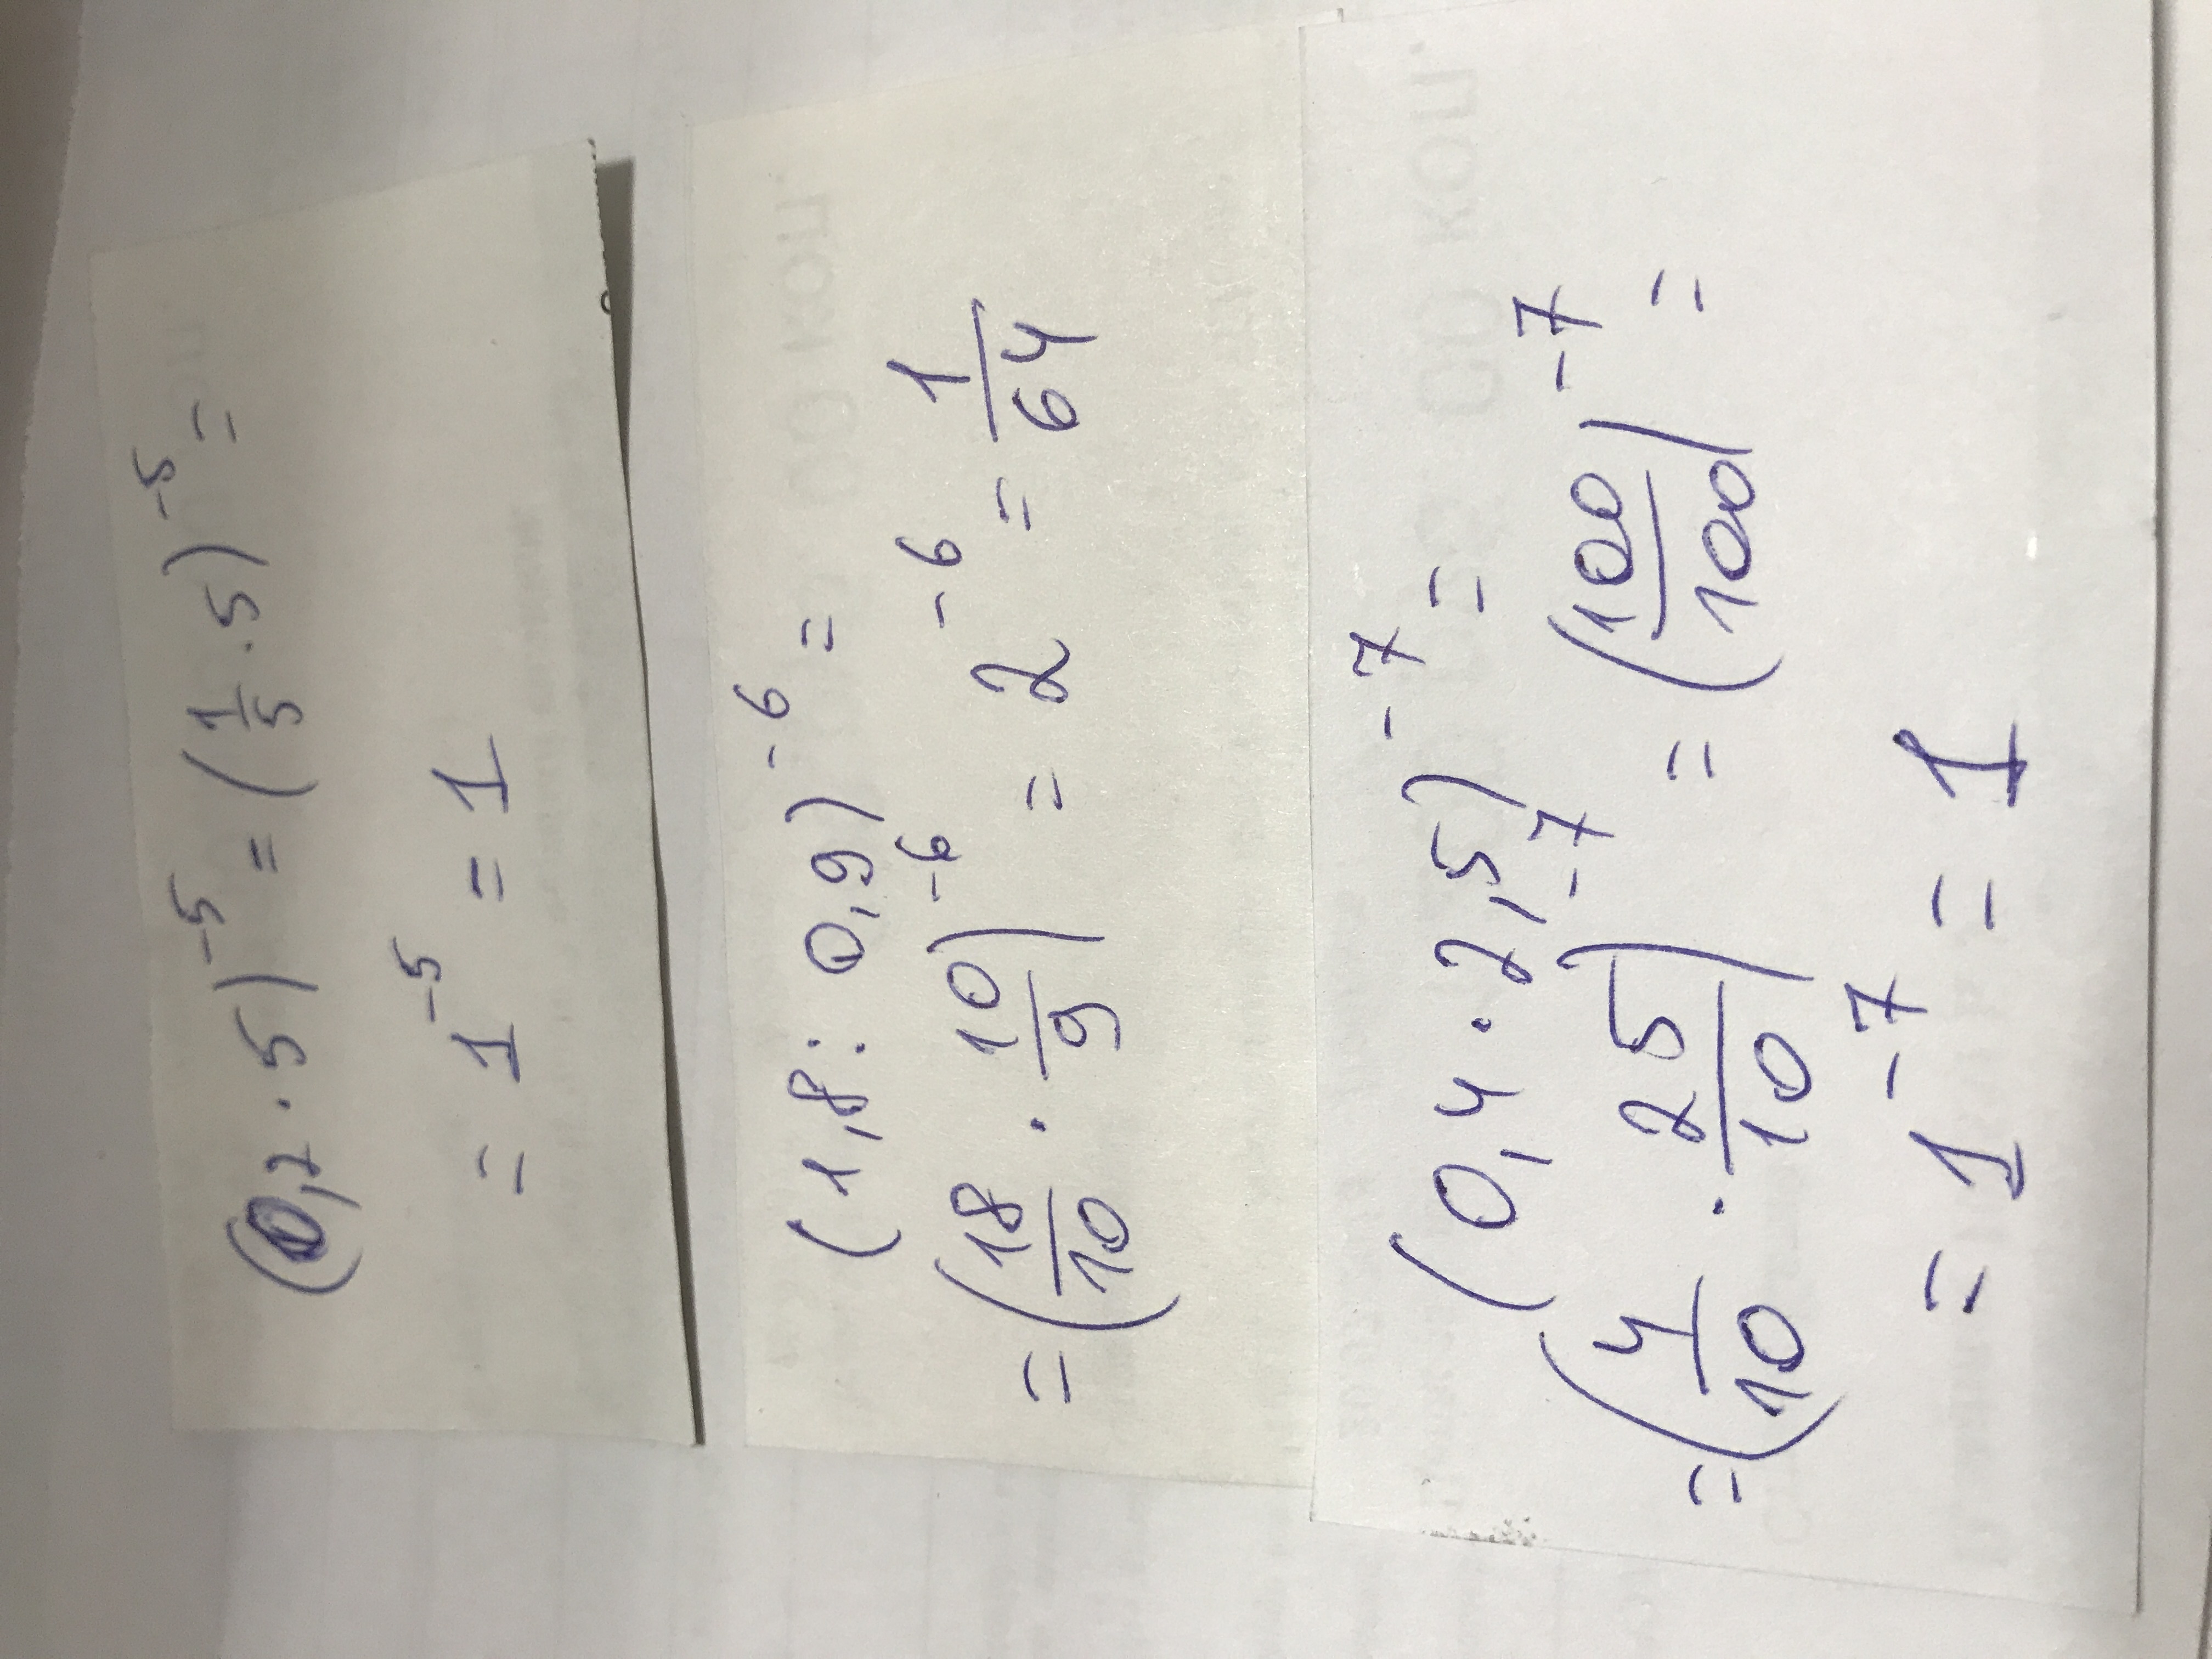 (0,2 · 5)⁻⁵ = (1/5 · 5)⁻⁵ =
= 1⁻⁵ = 1
(1,8 : 0,9)⁻⁶ =
= (18/10 · 10/9)⁻⁶ = 2⁻⁶ = 1/64
(0,4 · 2,5)⁻⁷ =
= (4/10 · 25/10)⁻⁷ = (100/100)⁻⁷ =
= 1⁻⁷ = 1